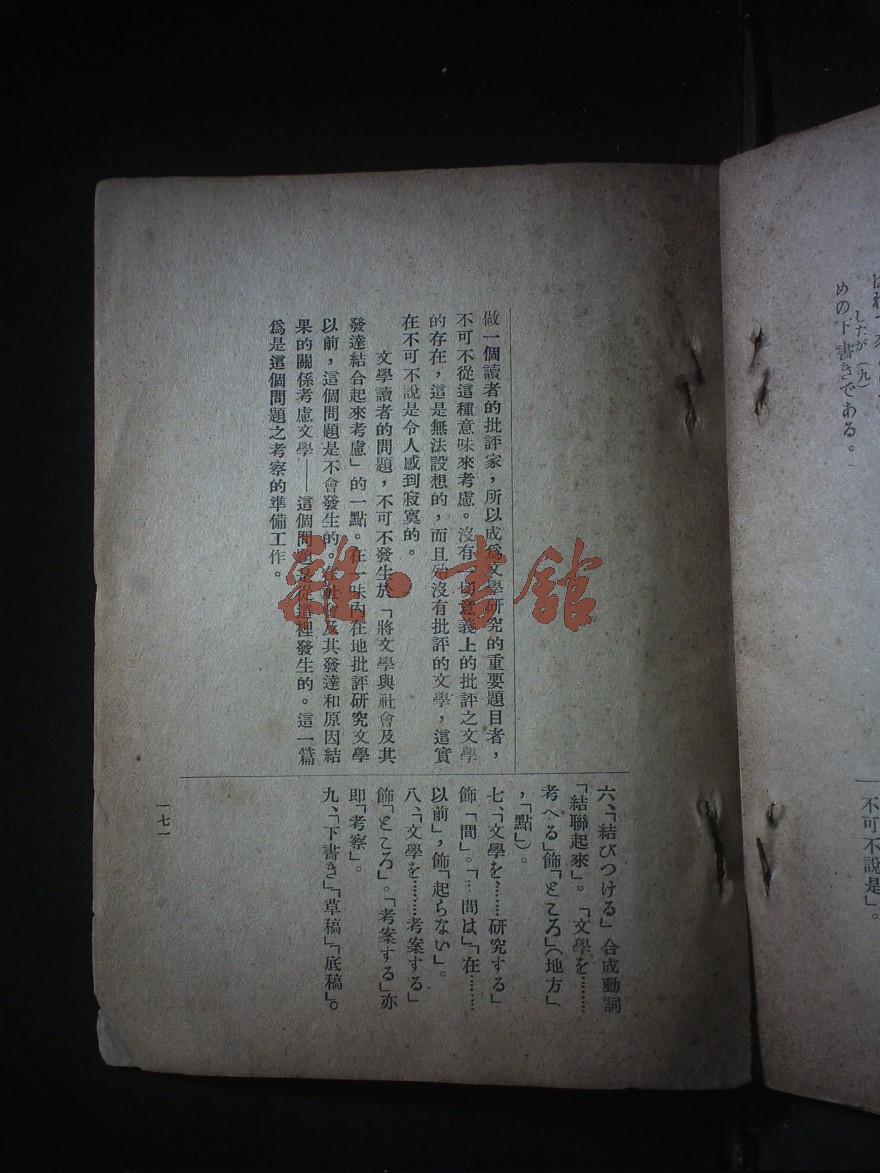 は
めの下書きである。
したが
(九)
不可不說是」。
做一個讀者的批評家，所以成爲文學研究的重要題目者，
不可不從這種意味來考慮。沒有一切意義上的批評之文學
的存在，這是無法設想的，而且 沒有批評的文學，這實
在不可不說是令人感到寂寞的。
文學讀者的問題，不可不發生於「將文學與社會及其
發達結合起來考慮」的一點。在一味內在地批評研究文學
以前，這個問題是不會發生的。 社會及其發達和原因結
果的關係考慮文學——這個問題是從這裡發生的。這一篇
爲是這個問題之考察的準備工作。
六、「結びつける」合成動詞
「結聯起來」。「文學を………
考へる」飾「ところ」(地方」
，「點」)。
七、「文學を……研究する」
飾「間」。「…間は」「在………
以前」，飾「起らない」。
八、「文學を………考案する」
飾「ところ」。「考案する」亦
即「考察」。
九、「下書き」「草稿」「底稿」。
一七一
雜·書館